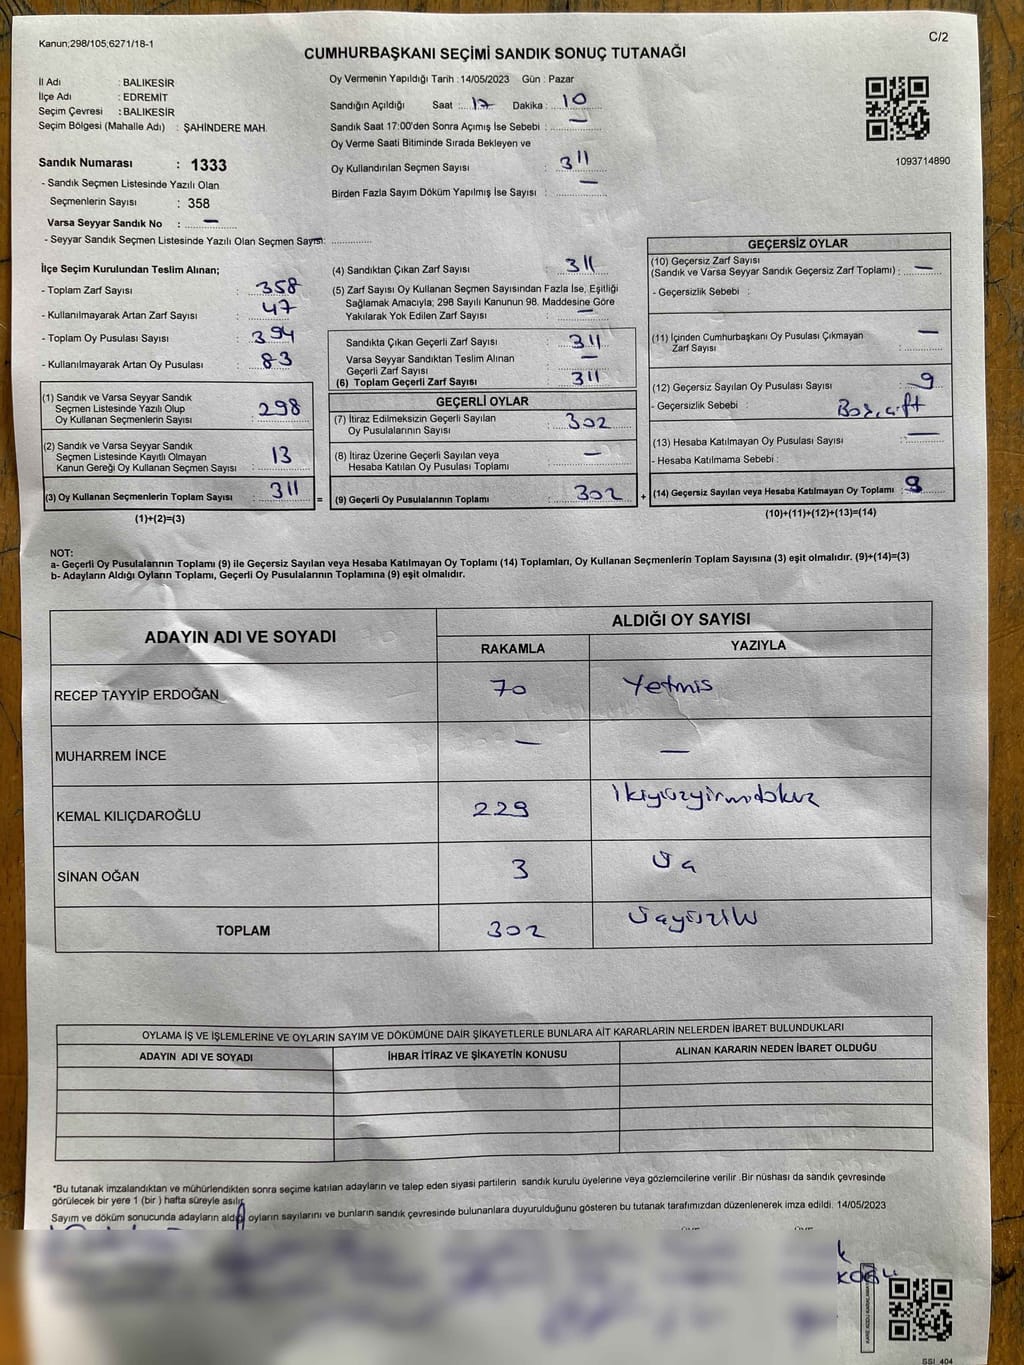 Kanun;298/105;6271/18-1
C/2
CUMHURBAŞKANI SEÇİMİ SANDIK SONUÇ TUTANAĞI
İl Adı : BALIKESİR
İlçe Adı : EDREMİT
Seçim Çevresi : BALIKESİR
Seçim Bölgesi (Mahalle Adı) : ŞAHİNDERE MAH.
Sandık Numarası : 1333
- Sandık Seçmen Listesinde Yazılı Olan
Seçmenlerin Sayısı : 358
Varsa Seyyar Sandık No : —
- Seyyar Sandık Seçmen Listesinde Yazılı Olan Seçmen Sayısı:
Oy Vermenin Yapıldığı Tarih : 14/05/2023 Gün : Pazar
Sandığın Açıldığı Saat : 17 Dakika : 10
Sandık Saat 17:00'den Sonra Açımış İse Sebebi : —
Oy Verme Saati Bitiminde Sırada Bekleyen ve
Oy Kullandırılan Seçmen Sayısı : 311
Birden Fazla Sayım Döküm Yapılmış İse Sayısı : —
1093714890
İlçe Seçim Kurulundan Teslim Alınan;
- Toplam Zarf Sayısı : 358
- Kullanılmayarak Artan Zarf Sayısı : 47
- Toplam Oy Pusulası Sayısı : 394
- Kullanılmayarak Artan Oy Pusulası : 83
(1) Sandık ve Varsa Seyyar Sandık
Seçmen Listesinde Yazılı Olup
Oy Kullanan Seçmenlerin Sayısı : 298
(2) Sandık ve Varsa Seyyar Sandık
Seçmen Listesinde Kayıtlı Olmayan
Kanun Gereği Oy Kullanan Seçmen Sayısı : 13
(3) Oy Kullanan Seçmenlerin Toplam Sayısı : 311
(1)+(2)=(3)
=
(4) Sandıktan Çıkan Zarf Sayısı : 311
(5) Zarf Sayısı Oy Kullanan Seçmen Sayısından Fazla İse, Eşitliği
Sağlamak Amacıyla; 298 Sayılı Kanunun 98. Maddesine Göre
Yakılarak Yok Edilen Zarf Sayısı : —
Sandıkta Çıkan Geçerli Zarf Sayısı : 311
Varsa Seyyar Sandıktan Teslim Alınan
Geçerli Zarf Sayısı : —
(6) Toplam Geçerli Zarf Sayısı : 311
GEÇERLİ OYLAR
(7) İtiraz Edilmeksizin Geçerli Sayılan
Oy Pusulalarının Sayısı : 302
(8) İtiraz Üzerine Geçerli Sayılan veya
Hesaba Katılan Oy Pusulası Toplamı : —
(9) Geçerli Oy Pusulalarının Toplamı : 302
+
GEÇERSİZ OYLAR
(10) Geçersiz Zarf Sayısı
(Sandık ve Varsa Seyyar Sandık Geçersiz Zarf Toplamı) : —
- Geçersizlik Sebebi :
(11) İçinden Cumhurbaşkanı Oy Pusulası Çıkmayan
Zarf Sayısı : —
(12) Geçersiz Sayılan Oy Pusulası Sayısı : 9
- Geçersizlik Sebebi : Boş, çift
(13) Hesaba Katılmayan Oy Pusulası Sayısı : —
- Hesaba Katılmama Sebebi :
(14) Geçersiz Sayılan veya Hesaba Katılmayan Oy Toplamı : 9
(10)+(11)+(12)+(13)=(14)
NOT:
a- Geçerli Oy Pusulalarının Toplamı (9) ile Geçersiz Sayılan veya Hesaba Katılmayan Oy Toplamı (14) Toplamları, Oy Kullanan Seçmenlerin Toplam Sayısına (3) eşit olmalıdır. (9)+(14)=(3)
b- Adayların Aldığı Oyların Toplamı, Geçerli Oy Pusulalarının Toplamına (9) eşit olmalıdır.
ADAYIN ADI VE SOYADI
ALDIĞI OY SAYISI
RAKAMLA YAZIYLA
RECEP TAYYİP ERDOĞAN 70 Yetmis
MUHARREM İNCE — —
KEMAL KILIÇDAROĞLU 229 ikiyüzyirmidokuz
SİNAN OĞAN 3 Üç
TOPLAM 302 Üçyüziki
OYLAMA İŞ VE İŞLEMLERİNE VE OYLARIN SAYIM VE DÖKÜMÜNE DAİR ŞİKAYETLERLE BUNLARA AİT KARARLARIN NELERDEN İBARET BULUNDUKLARI
ADAYIN ADI VE SOYADI İHBAR İTİRAZ VE ŞİKAYETİN KONUSU ALINAN KARARIN NEDEN İBARET OLDUĞU
*Bu tutanak imzalandıktan ve mühürlendikten sonra seçime katılan adayların ve talep eden siyasi partilerin sandık kurulu üyelerine veya gözlemcilerine verilir .Bir nüshası da sandık çevresinde
görülecek bir yere 1 (bir ) hafta süreyle asılır.
Sayım ve döküm sonucunda adayların aldığı oyların sayılarını ve bunların sandık çevresinde bulunanlara duyurulduğunu gösteren bu tutanak tarafımızdan düzenlenerek imza edildi. 14/05/2023
SSI 404